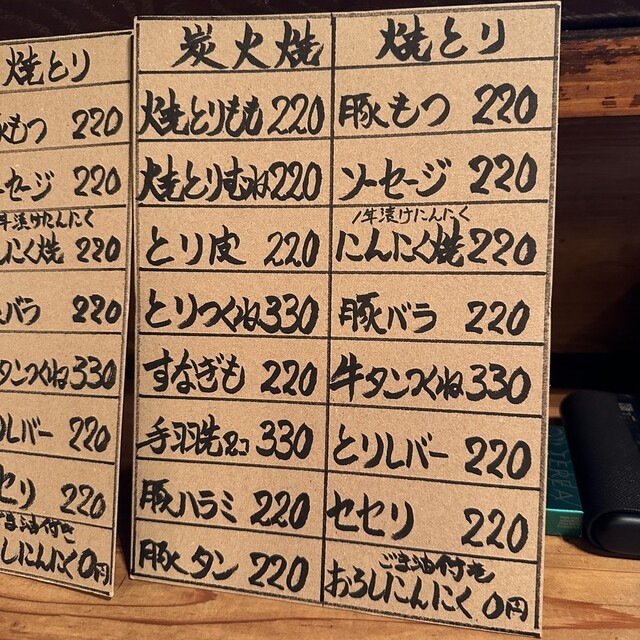 焼とり
もつ 220
セージ 220
年漬けにんにく
にく焼 220
バラ 220
タンつくね 330
レバー 220
セリ 220
ごま油付き
しにんにく 0円
炭火焼 焼とり
焼とりもも 220 豚もつ 220
焼とりむね 220 ソーセージ 220
1年漬けにんにく
とり皮 220 にんにく焼 220
とりつくね 330 豚バラ 220
すなぎも 220 牛タンつくね 330
手羽先2コ 330 とりレバー 220
豚ハラミ 220 セセリ 220
ごま油付き
豚タン 220 おろしにんにく 0円